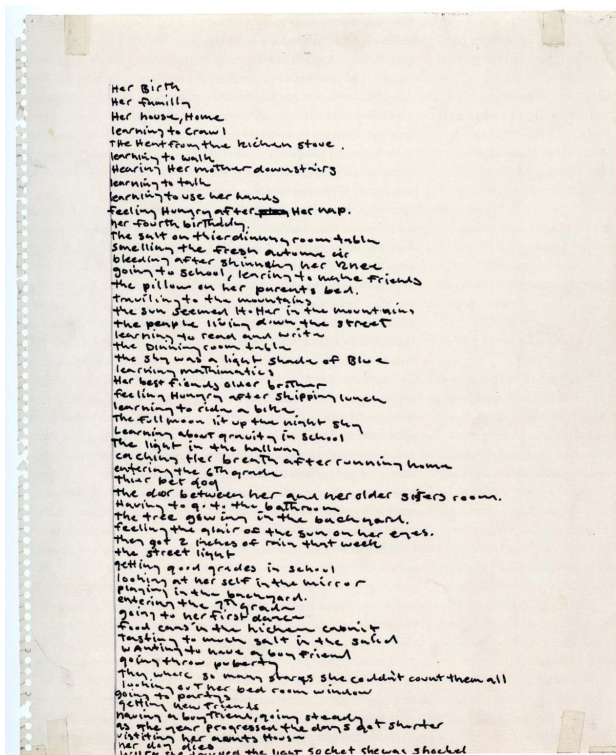 Her Birth
Her familly
Her house, Home
learning to crawl
THe Heat from the kichen stove.
learning to walk
Hearing Her mother downstairs
learning to talk
learning to use her hands
feeling Hungry after Her nap.
her fourth birthday.
The salt on thier dinning room table
smelling the fresh autumn air
bleeding after shinning her knee
going to school, learing to make friends
the pillow on her parents bed.
traviling to the mountains
the sun seemed Hotter in the mountains
the people living down the street
learning to read and write
the Dinning room table
the sky was a light shade of Blue
learning mathimatics
Her best friends older brother
feeling Hungry after skipping lunch
learning to ride a bike
The full moon lit up the night sky
Learning about gravity in school
The light in the hallway
caching Her breath after running home
entering the 6th grade
Thier pet dog
the dor between her and her older sisters room.
Having to go to the bathroom
The tree growing in the back yard.
feeling the glair of the sun on her eyes.
they got 2 inches of rain that week
the street light
getting good grades in school
looking at her self in the mirror
playing in the backyard.
entering the 7th grade
going to her first dance
food cans in the kichen cabnit
tasting to much salt in the salid
wanting to have a boy friend
going throw puberty
they where so many stars she couldn't count them all
looking out her bed room window
going to partys
getting new friends
Having a boyfriend, going steady
as the year progressed the days got shorter
visiting her aents House
her dog dies
the light socket she was shocked